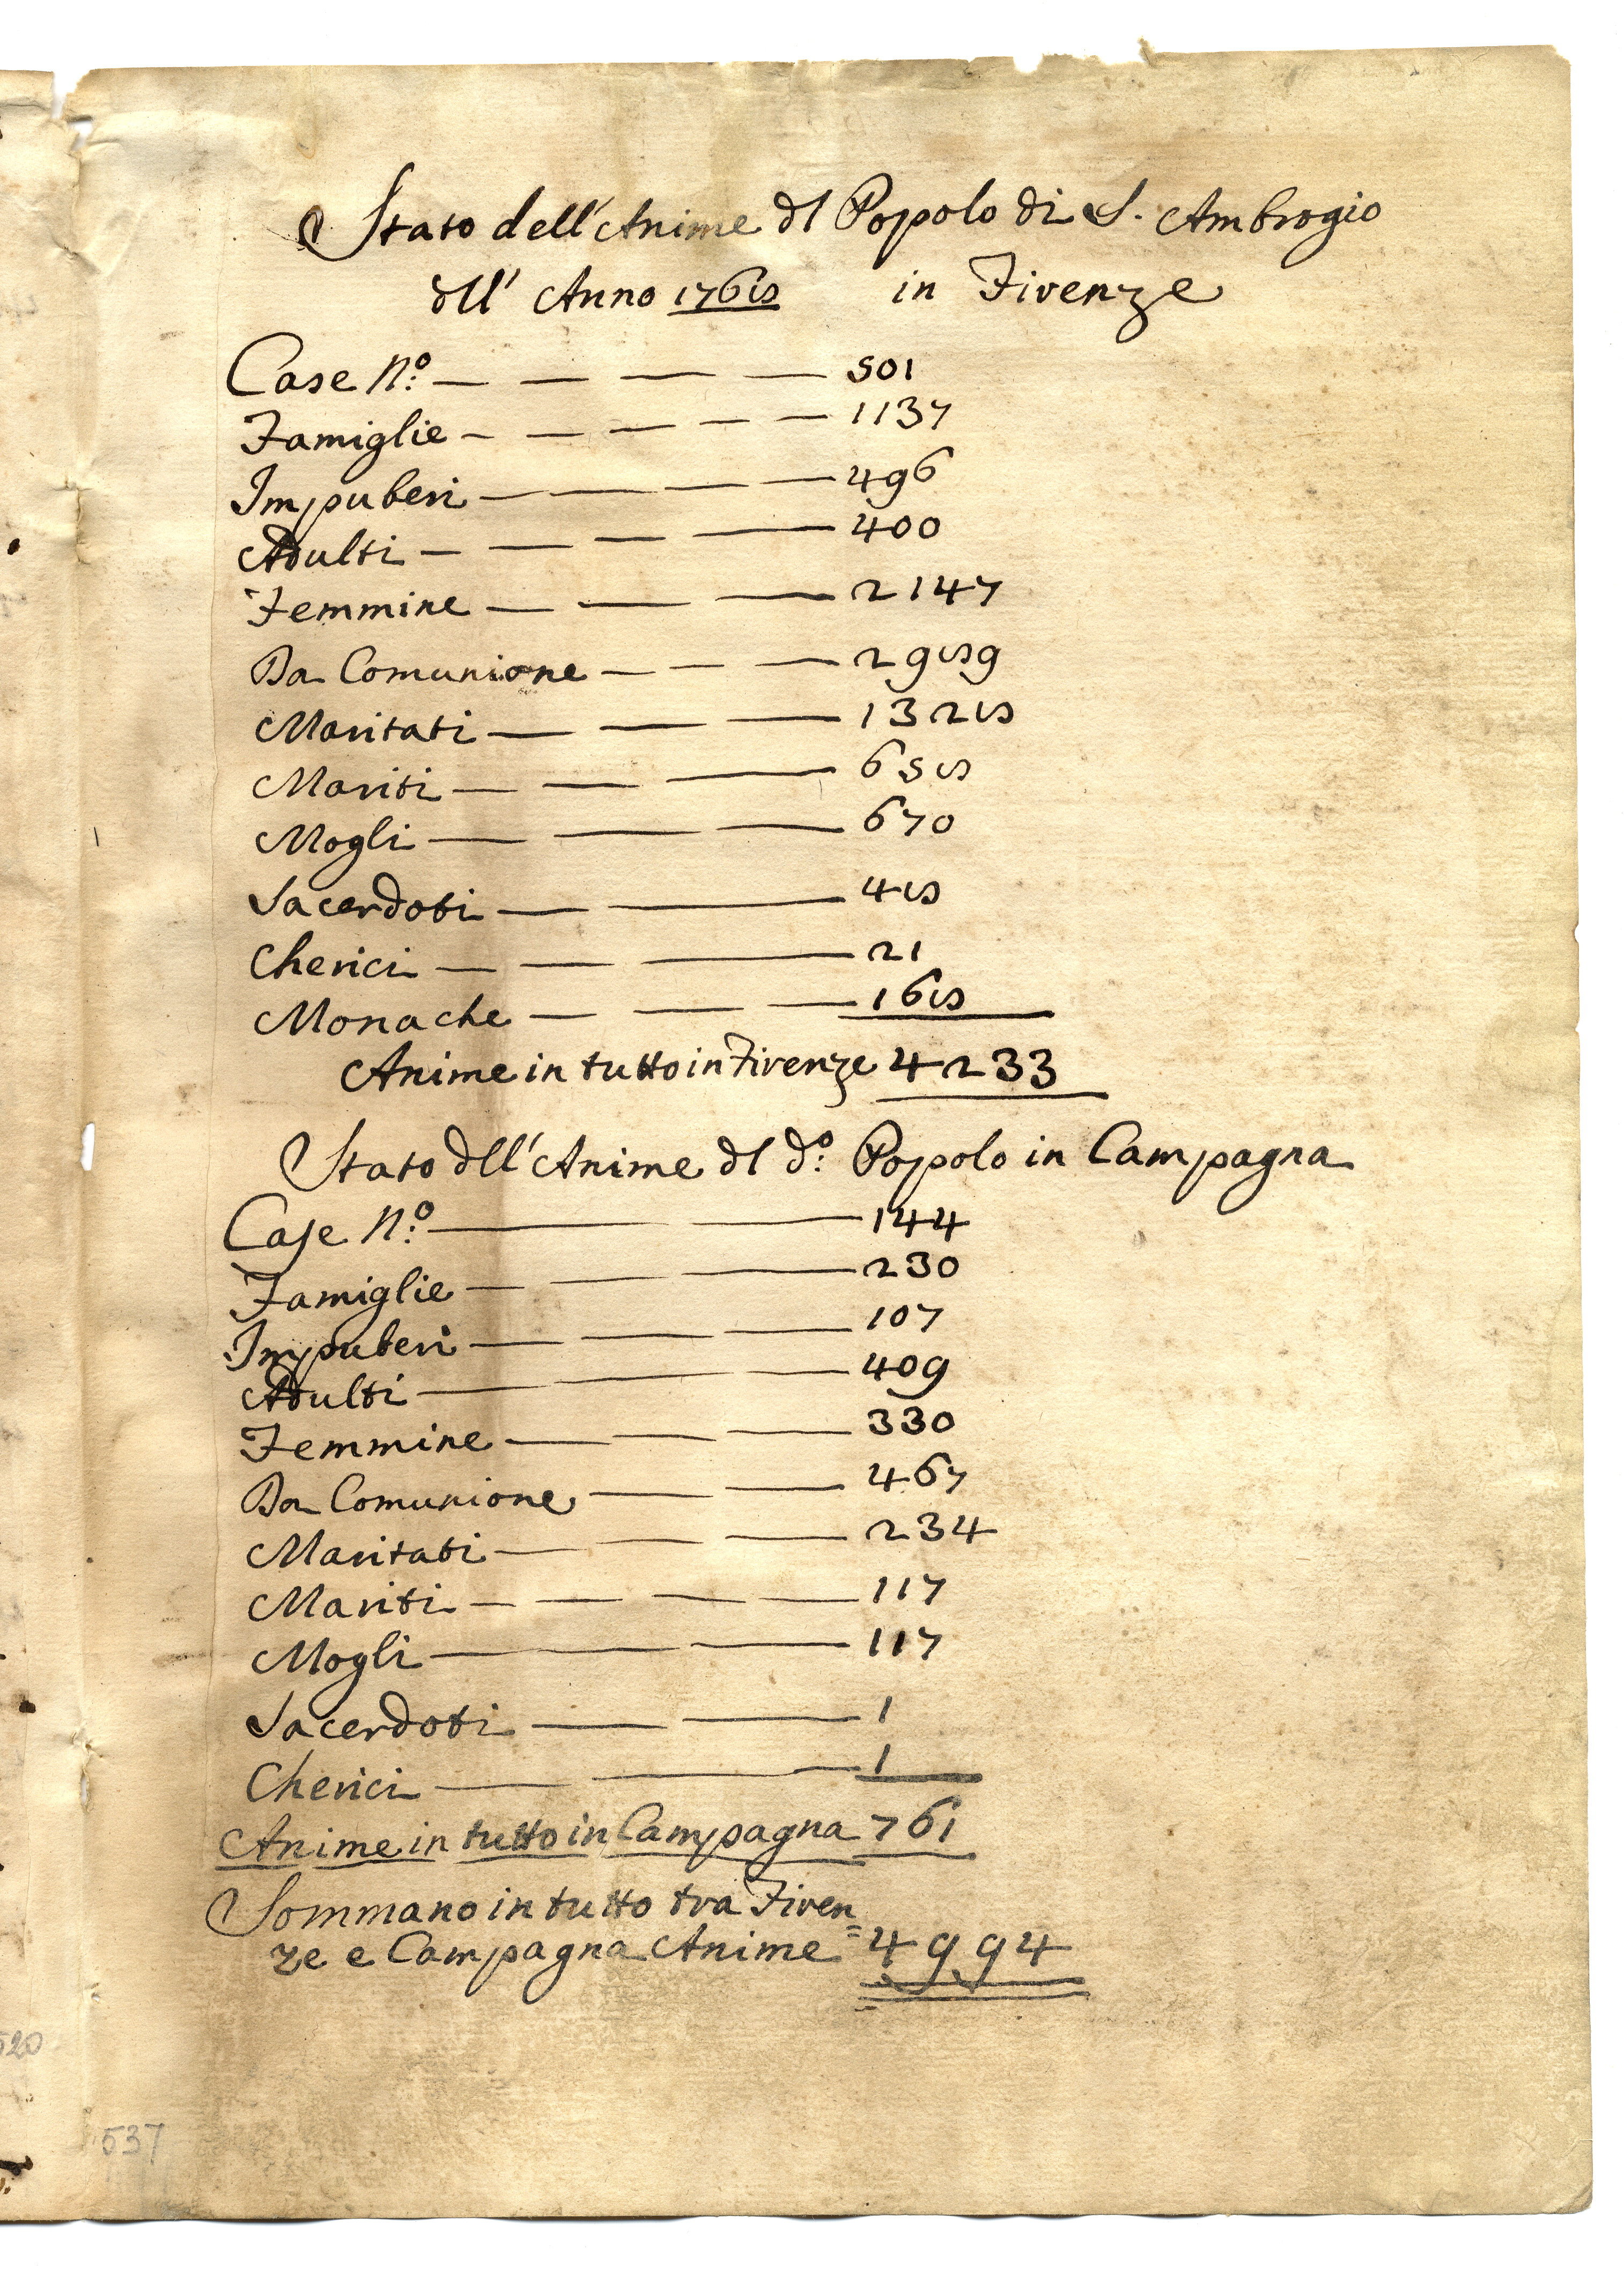 Stato dell'Anime dl Popolo di S. Ambrogio
dll' Anno 1768 in Firenze
Case N.º — — — — 501
Famiglie — — — — — 1137
Impuberi — — — — 496
Adulti — — — — 400
Femmine — — — 2147
Da Comunione — — — 2989
Maritati — — — 1328
Mariti — — — 658
Mogli — — — 670
Sacerdoti — — 48
Cherici — — — 21
Monache — — — 168
Anime in tutto in Firenze 4233
Stato dll'Anime dl d.º Popolo in Campagna
Case N.º — — 144
Famiglie — — — 230
Impuberi — — — 107
Adulti — — — 409
Femmine — — — 330
Da Comunione — — 467
Maritati — — — 234
Mariti — — — — 117
Mogli — — 117
Sacerdoti — — 1
Cherici — — 1
Anime in tutto in Campagna 761
Sommano in tutto tra Firen
=ze e Campagna Anime 4994
520
537